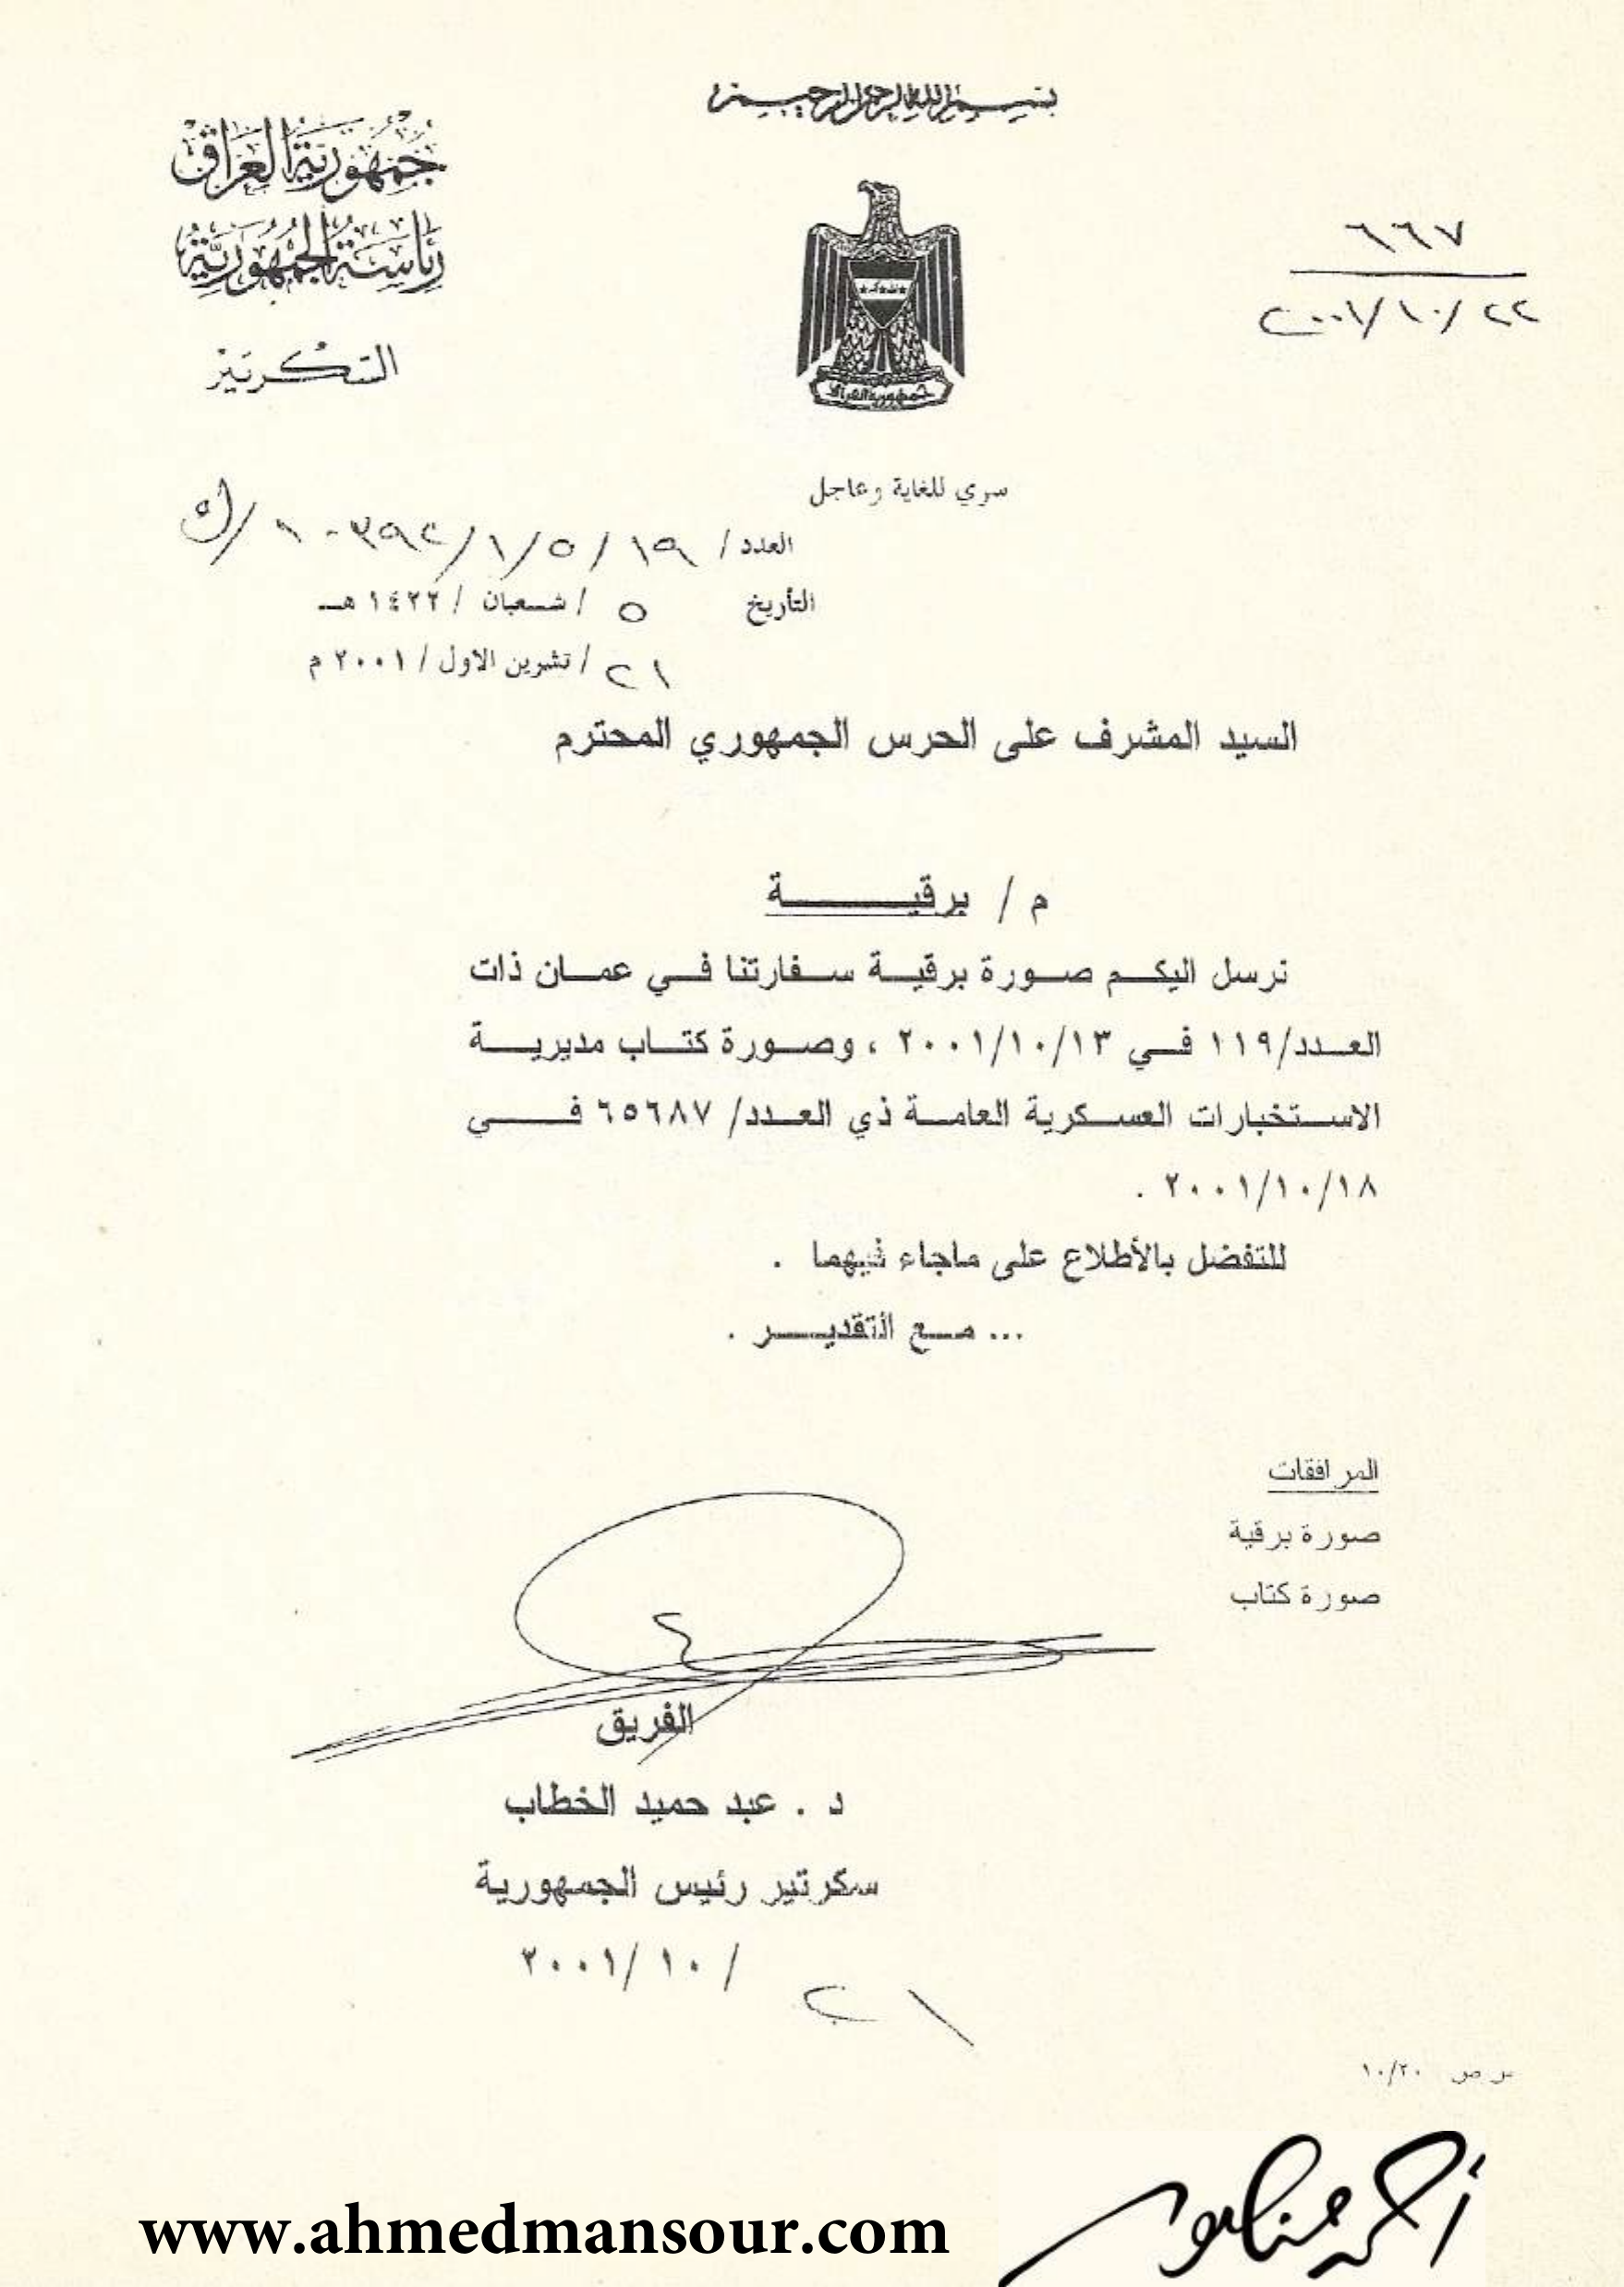 بسم الله الرحمن الرحيم
جمهورية العراق
رئاسة الجمهورية
السكرتير
٦٦٧
٢٠٠١/١٠/٢٢
جمهورية العراق
سري للغاية وعاجل
العدد/ ١٩/٥/١/
التأريخ ٥ / شعبان / ١٤٢٢ هـ
٢١ / تشرين الاول / ٢٠٠١ م
السيد المشرف على الحرس الجمهوري المحترم
م / برقيــة
نرسل اليكم صورة برقية سفارتنا في عمان ذات
العدد/١١٩ في ٢٠٠١/١٠/١٣ ، وصورة كتاب مديرية
الاستخبارات العسكرية العامة ذي العدد/ ٦٥٦٨٧ في
٢٠٠١/١٠/١٨ .
للتفضل بالأطلاع على ماجاء فيهما .
... مع التقدير .
المرافقات
صورة برقية
صورة كتاب
الفريق
د . عبد حميد الخطاب
سكرتير رئيس الجمهورية
٢١ / ١٠ /٢٠٠١
١٠/٢٠
أحمد منصور
www.ahmedmansour.com